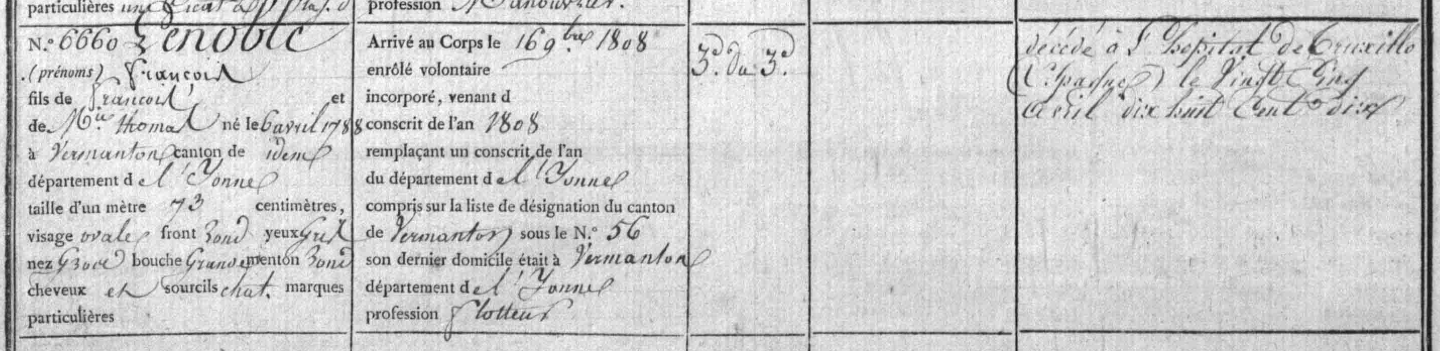 particulières une
profession Manouvrier.
N.º 6660 Lenoble
(prénoms) François
fils de François et
de Mie thomas né le 6 avril 1788
à Vermanton canton de idem
département d el'Yonne
taille d'un mètre 73 centimètres,
visage ovale front rond yeux gris
nez Gros bouche Grande menton rond
cheveux et sourcils chat. marques
particulières
Arrivé au Corps le 16 9bre 1808
enrôlé volontaire
incorporé, venant d
conscrit de l'an 1808
remplaçant un conscrit de l'an
du département d el'Yonne
compris sur la liste de désignation du canton
de Vermanton sous le N.º 56
son dernier domicile était à Vermanton
département d el'Yonne
profession flotteur
3e. du 3e.
décédé à l'hopital de Truxillo
(Espagne) le Vingt Cinq
avril dix huit Cent dix